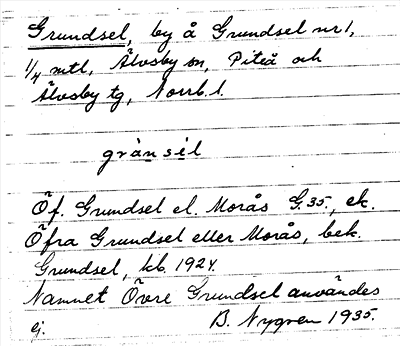 Grundsel, by å Grundsel nr 1,
1/4 mtl, Älvsby sn, Piteå och
Älvsby tg, Norrb. l.
gränsil
Öf. Grundsel el. Morås G. 35., ek.
Öfra Grundsel eller Morås, bek.
Grundsel, kb. 1924.
Namnet Övre Grundsel användes
ej. B. Nygren 1935.